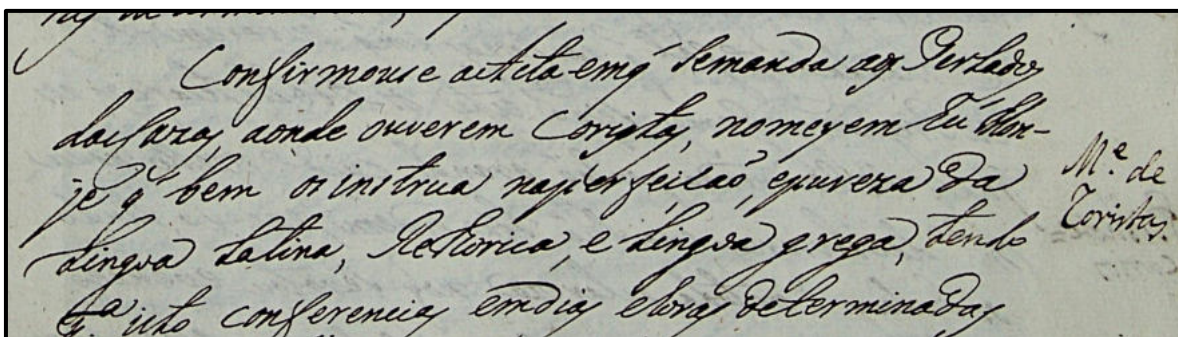 Confirmouse a acta em q̃ Semanda aos Perlados
das Cazas, aonde ouverem Coristas, nomeyem hũ Mon-
je q̃ bem os instrua naperfeicaõ, epureza da
Lingoa Latina, Rethorica, e Lingoa grega, tendo
p.ª isto conferencias emdias ehoras determinadas
M.e de
Coristas.